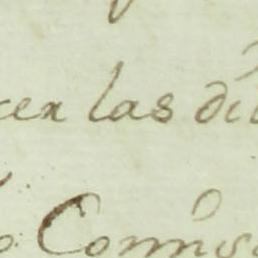 cer las di
o Comis